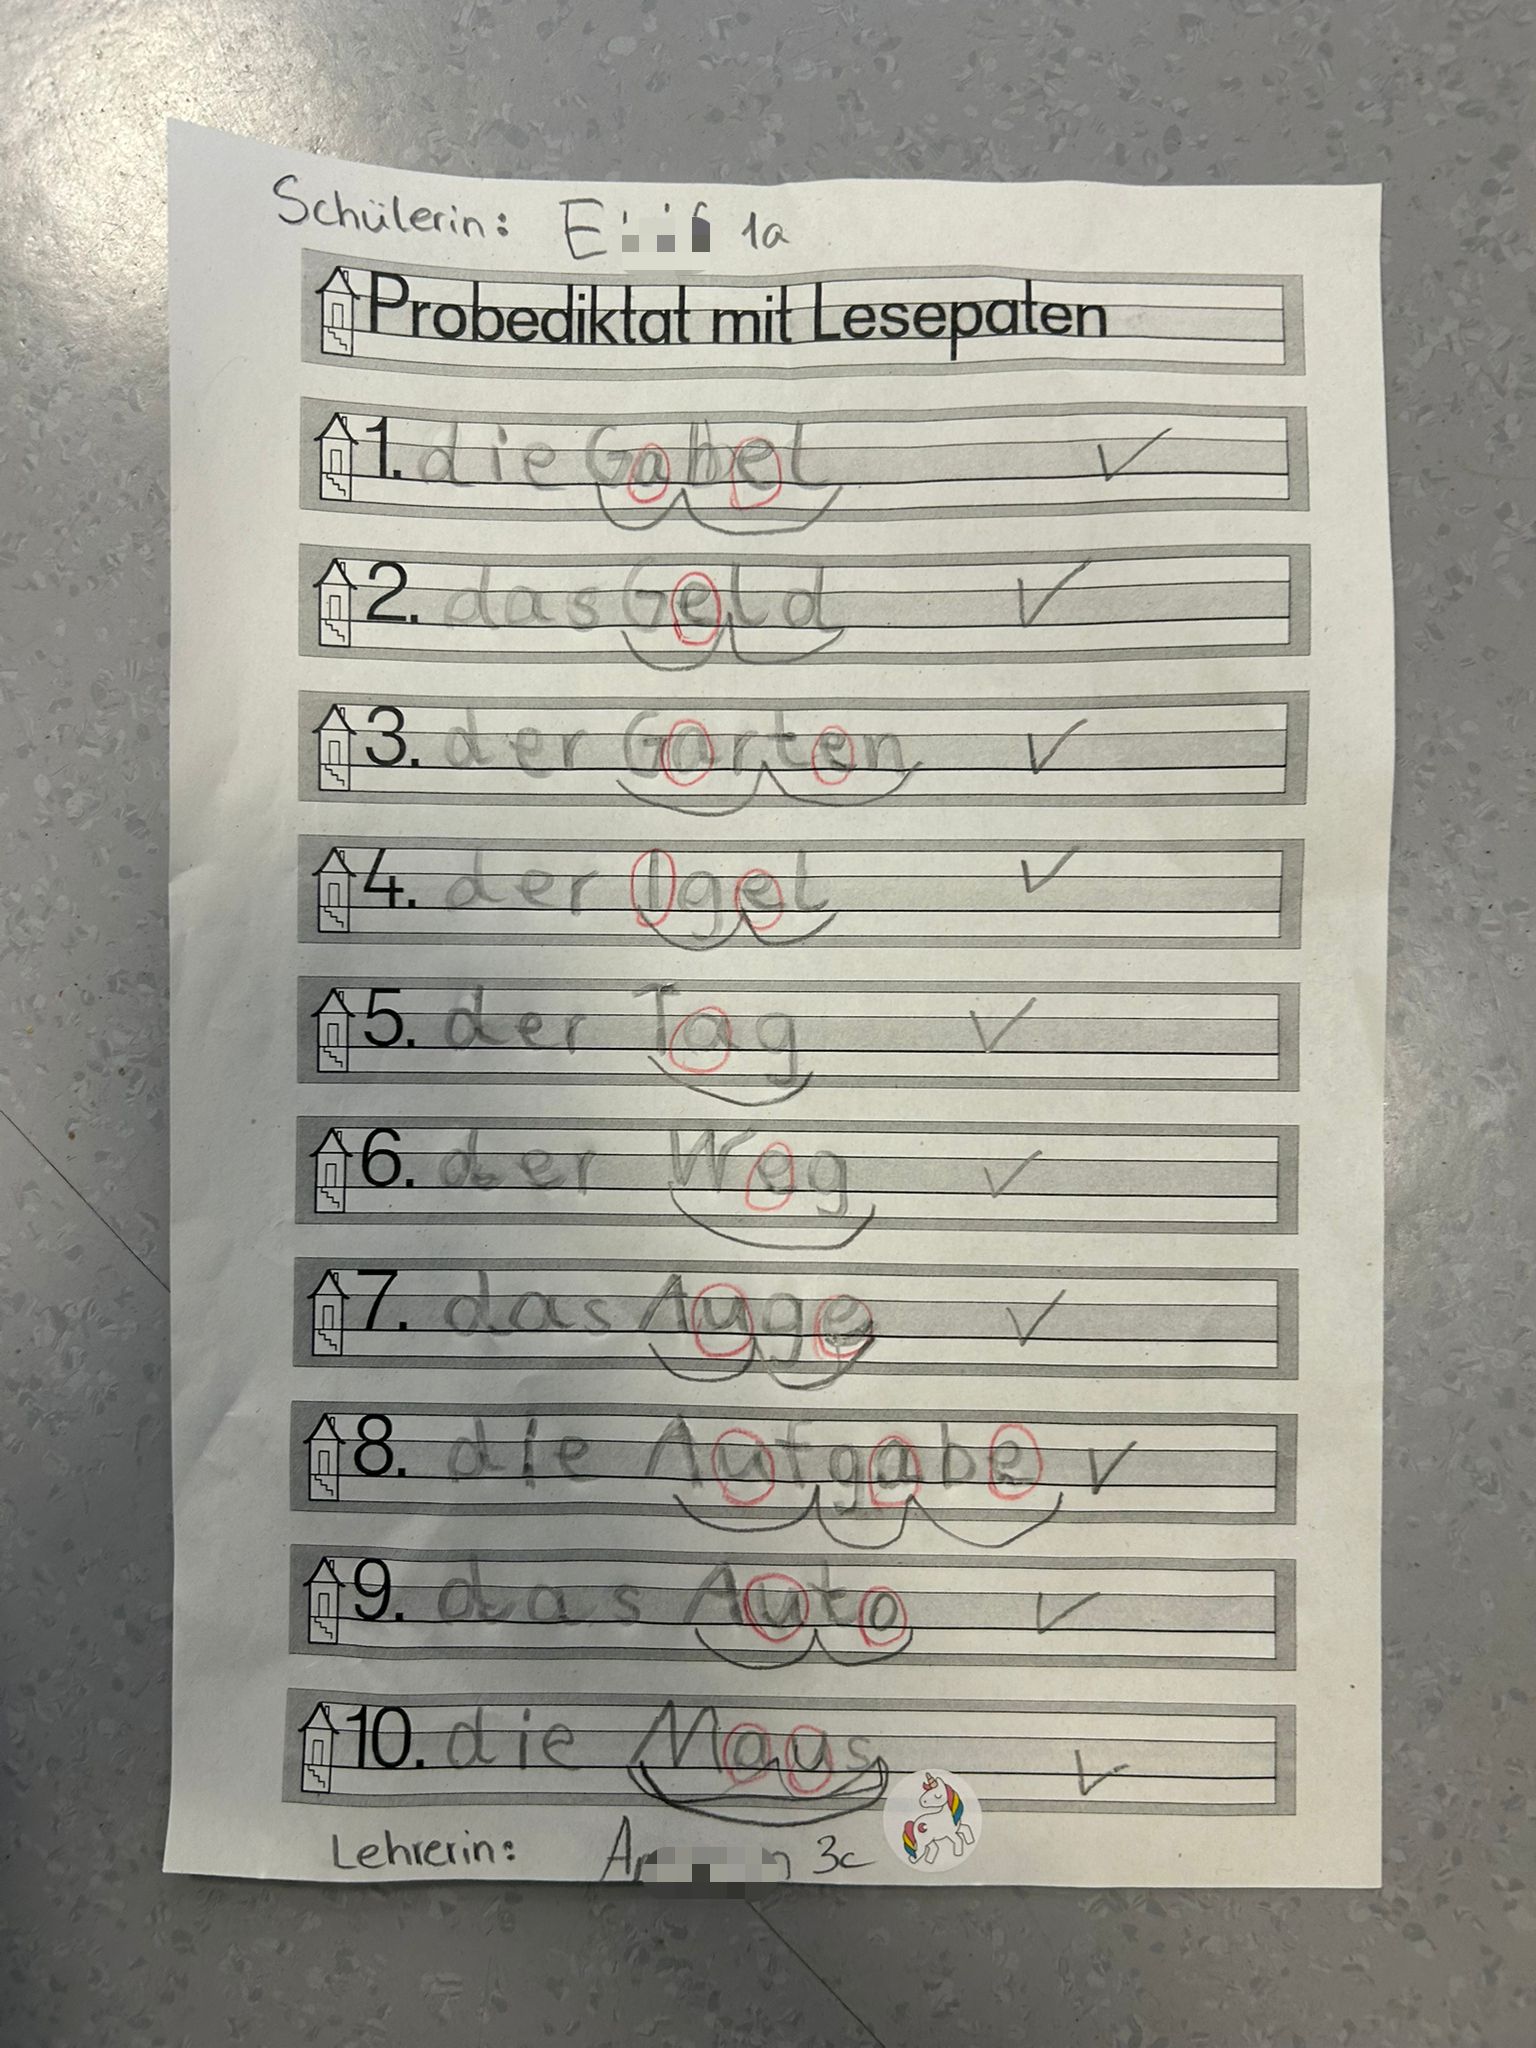 Schülerin: 1a
Probediktat mit Lesepaten
1. die Gabel
2. das Geld
3. der Garten
4. der Igel
5. der Tag
6. der Weg
7. das Auge
8. die Aufgabe
9. das Auto
10. die Maus
Lehrerin: 3c